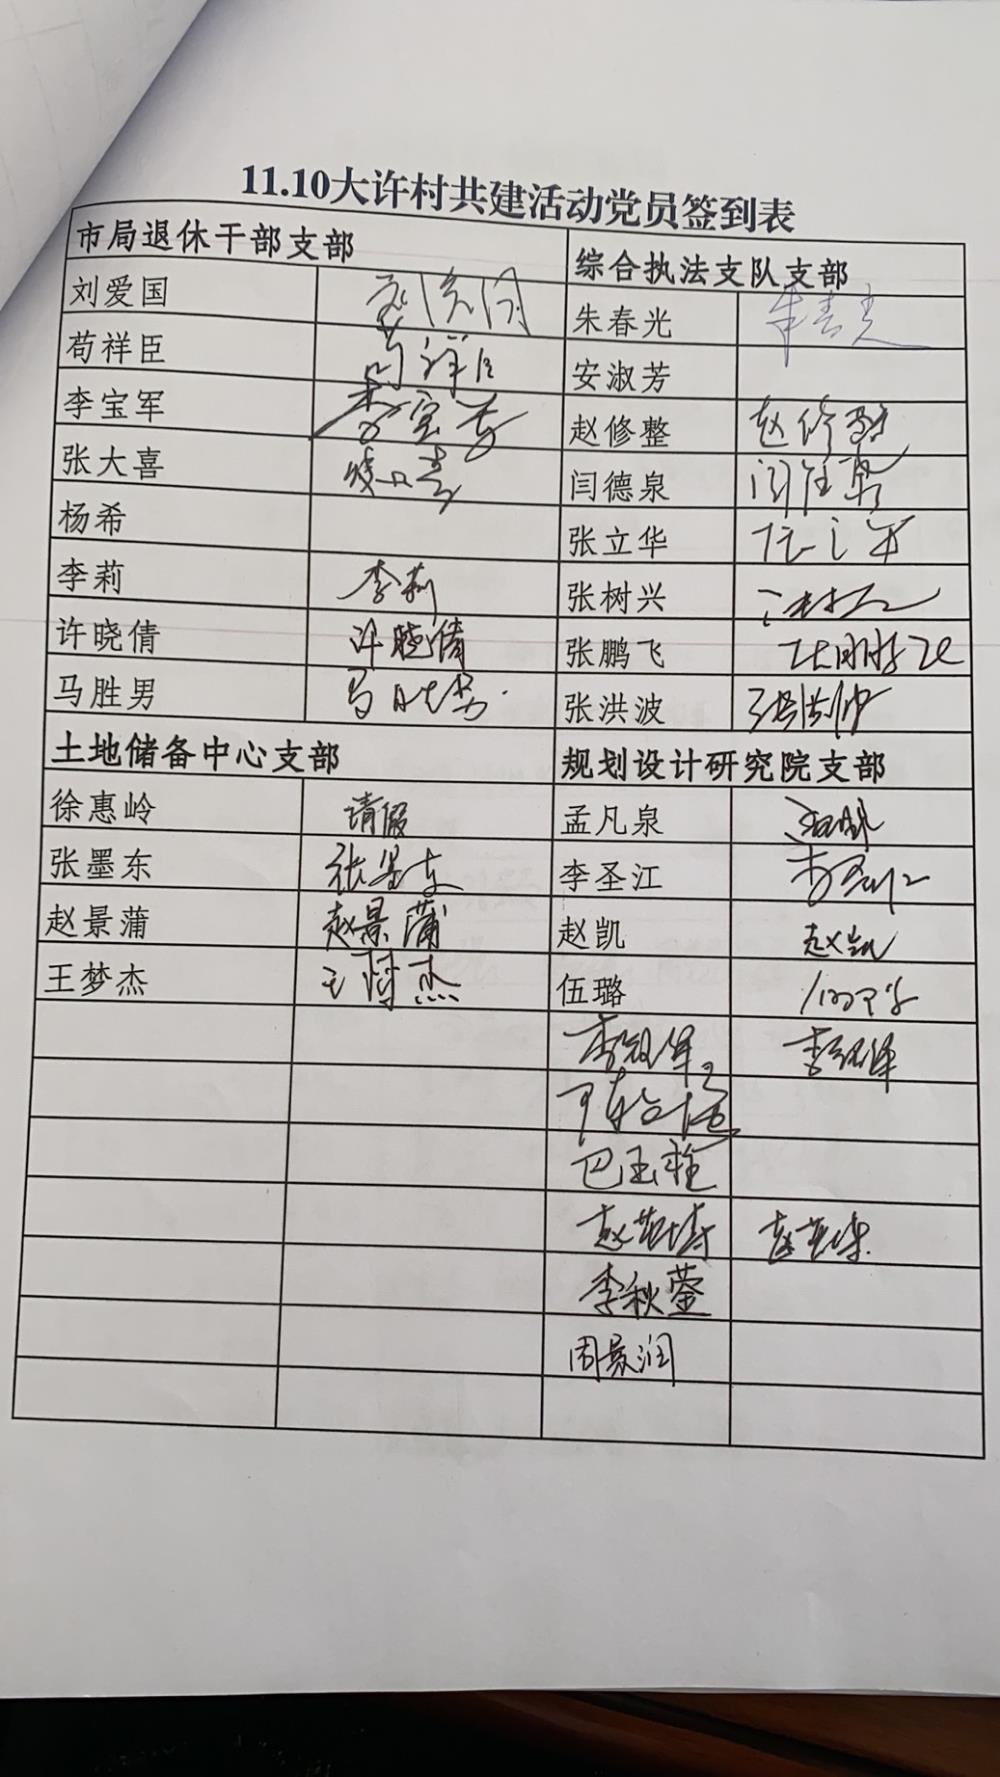 11.10大许村共建活动党员签到表
市局退休干部支部 综合执法支队支部
刘爱国 朱春光 朱春光
苟祥臣 苟祥臣 安淑芳
李宝军 李宝军 赵修整 赵修整
张大喜 闫德泉 闫德泉
杨希 张立华
李莉 李莉 张树兴
许晓倩 许晓倩 张鹏飞 张鹏飞
马胜男 马胜男 张洪波 张洪波
土地储备中心支部 规划设计研究院支部
徐惠岭 请假 孟凡泉
张墨东 张墨东 李圣江 李圣江
赵景蒲 赵景蒲 赵凯 赵凯
王梦杰 王梦杰 伍璐
巴玉栓
李秋蓥
周景润